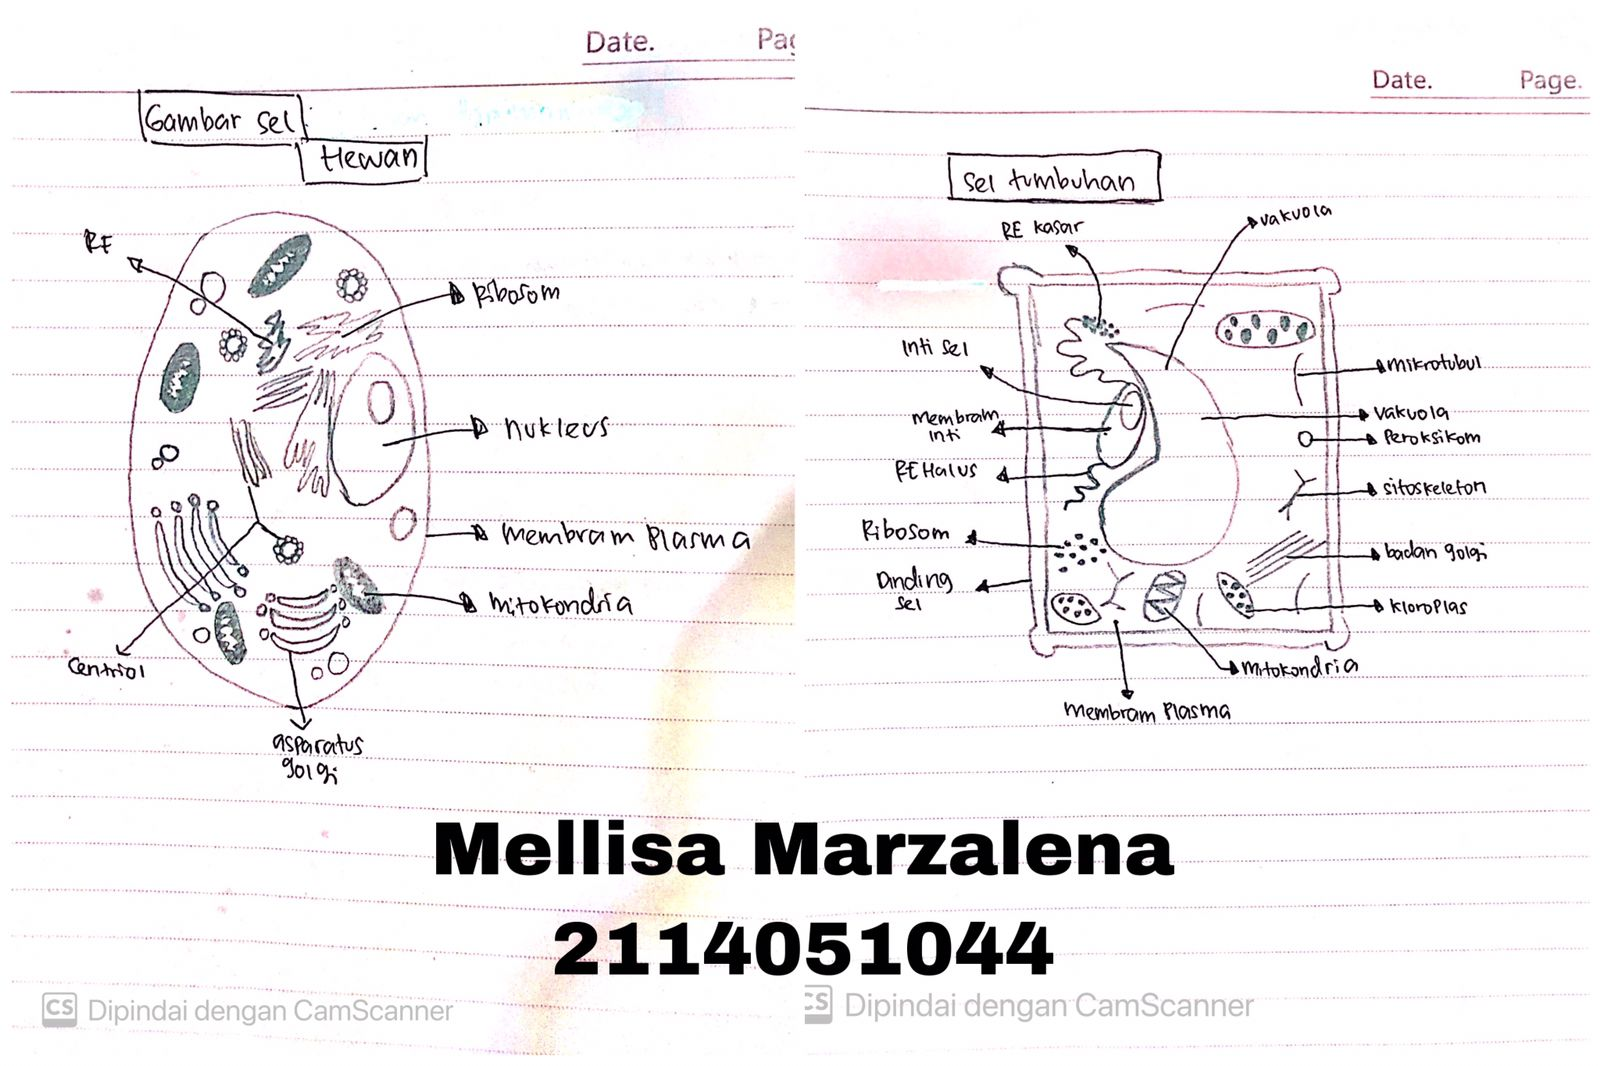 Date.
Pag
Gambar sel
Hewan
RE
Ribosom
nukleus
membram plasma
mitokondria
Centriol
asparatus
golgi
Date.
Page.
Sel tumbuhan
RE kasar
vakuola
Inti sel
mikrotubul
membram
inti
vakuola
Peroksikom
RE Halus
sitoskeleton
Ribosom
badan golgi
Dinding
sel
kloroplas
mitokondria
membram plasma
Mellisa Marzalena
2114051044
CS Dipindai dengan CamScanner
CS Dipindai dengan CamScanner